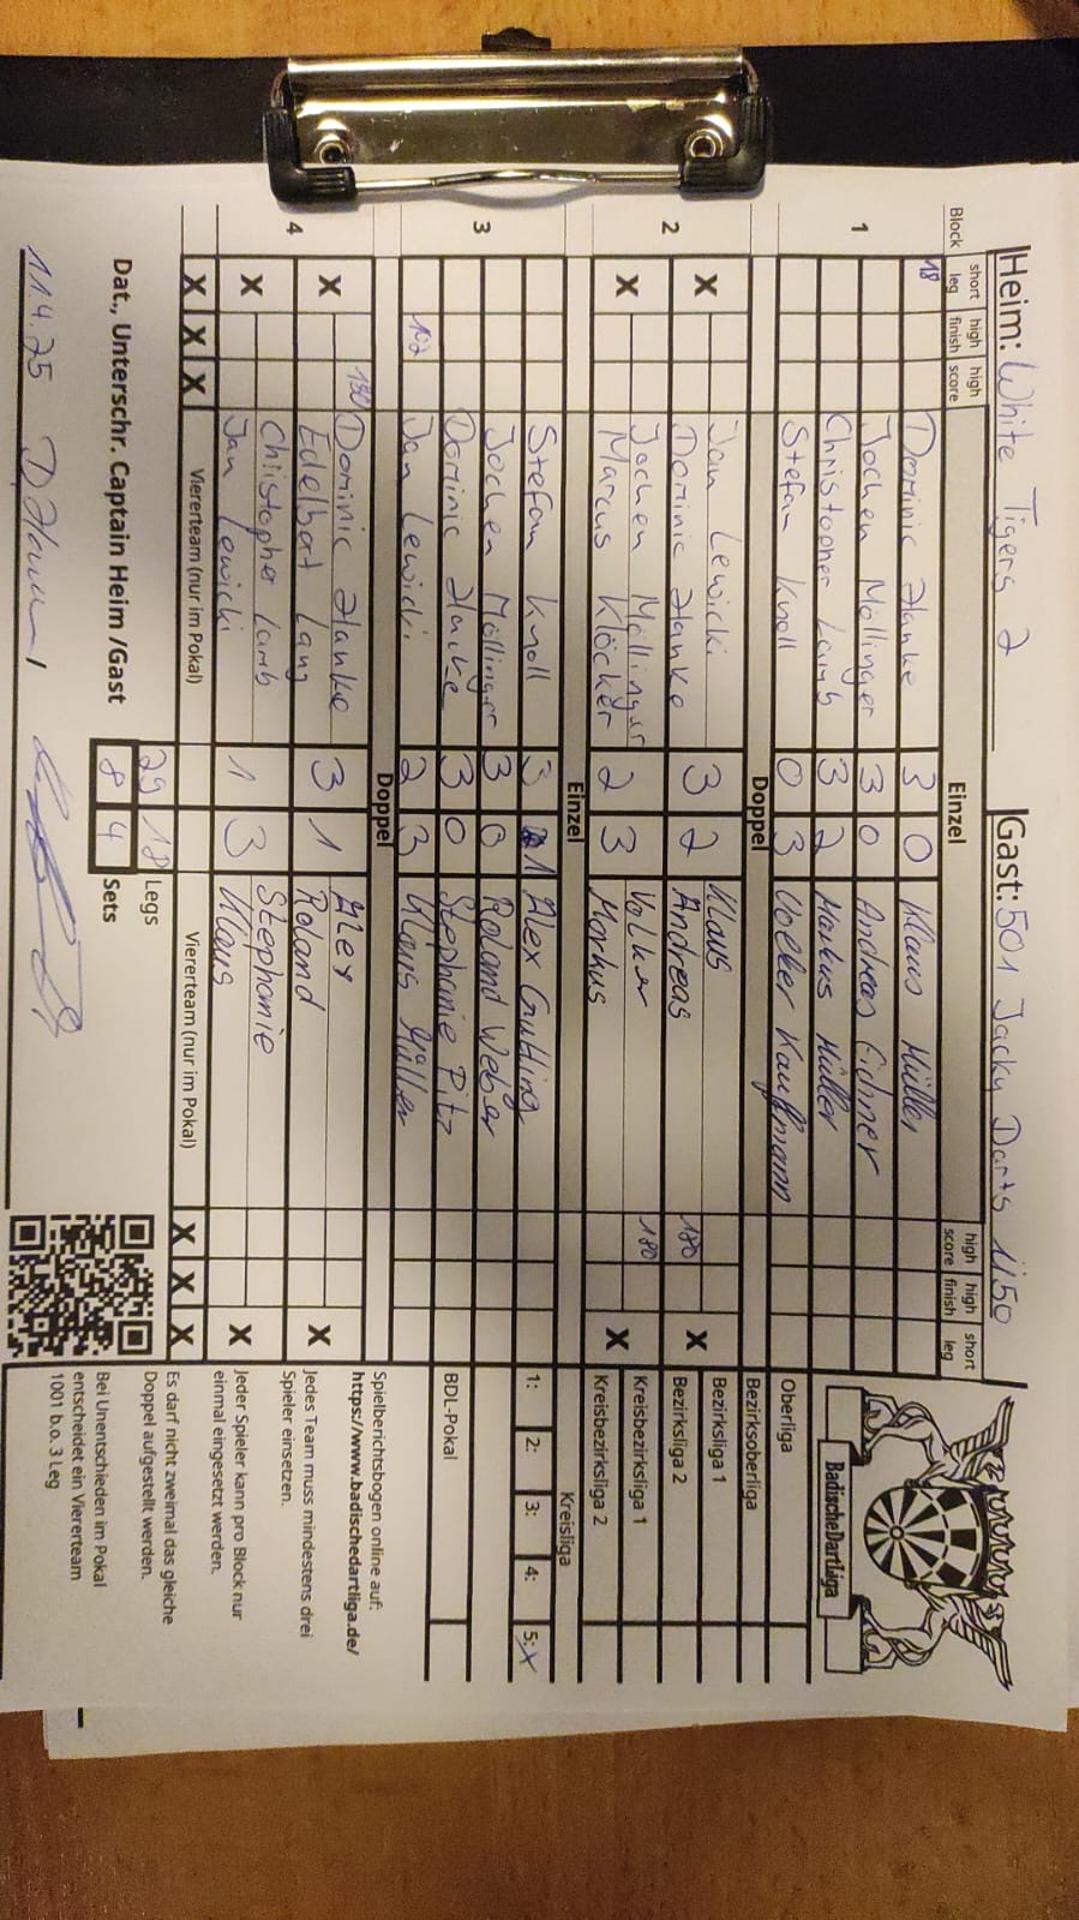 Heim: White Tigers 2 Gast: 501 Jacky Darts Ü50
Block short leg high finish high score Einzel high score high finish short leg
1 18 Dominic Hanke 3 0 Klaus Müller
Jochen Möllinger 3 0 Andreas Eichner
Christopher Lamb 3 2 Markus Müller
Stefan Knoll 0 3 Volker Kaufmann
Doppel
2 X Jan Lewicki 3 2 Klaus X
Dominic Hanke Andreas 180
X Jochen Möllinger 2 3 Volker 180 X
Marcus Klöcker Markus
Einzel
3 Stefan Knoll 3 1 Alex Gubling
Jochen Möllinger 3 0 Roland Weber
Dominic Hanke 3 0 Stephanie Pitz
102 Jan Lewicki 2 3 Klaus Müller
Doppel
4 X 180 Dominic Hanke 3 1 Alex X
Edelbert Lang Roland
X Christopher Lamb 1 3 Stephanie X
Jan Lewicki Klaus
X X X Viererteam (nur im Pokal) Viererteam (nur im Pokal) X X X
29 18 Legs
8 4 Sets
Dat., Unterschr. Captain Heim /Gast
11.4.25
BadischeDartLiga
Oberliga
Bezirksoberliga
Bezirksliga 1
Bezirksliga 2
Kreisbezirksliga 1
Kreisbezirksliga 2
Kreisliga
1: 2: 3: 4: 5: X
BDL-Pokal
Spielberichtsbogen online auf:
https://www.badischedartliga.de/
Jedes Team muss mindestens drei
Spieler einsetzen.
Jeder Spieler kann pro Block nur
einmal eingesetzt werden.
Es darf nicht zweimal das gleiche
Doppel aufgestellt werden.
Bei Unentschieden im Pokal
entscheidet ein Viererteam
1001 b.o. 3 Leg